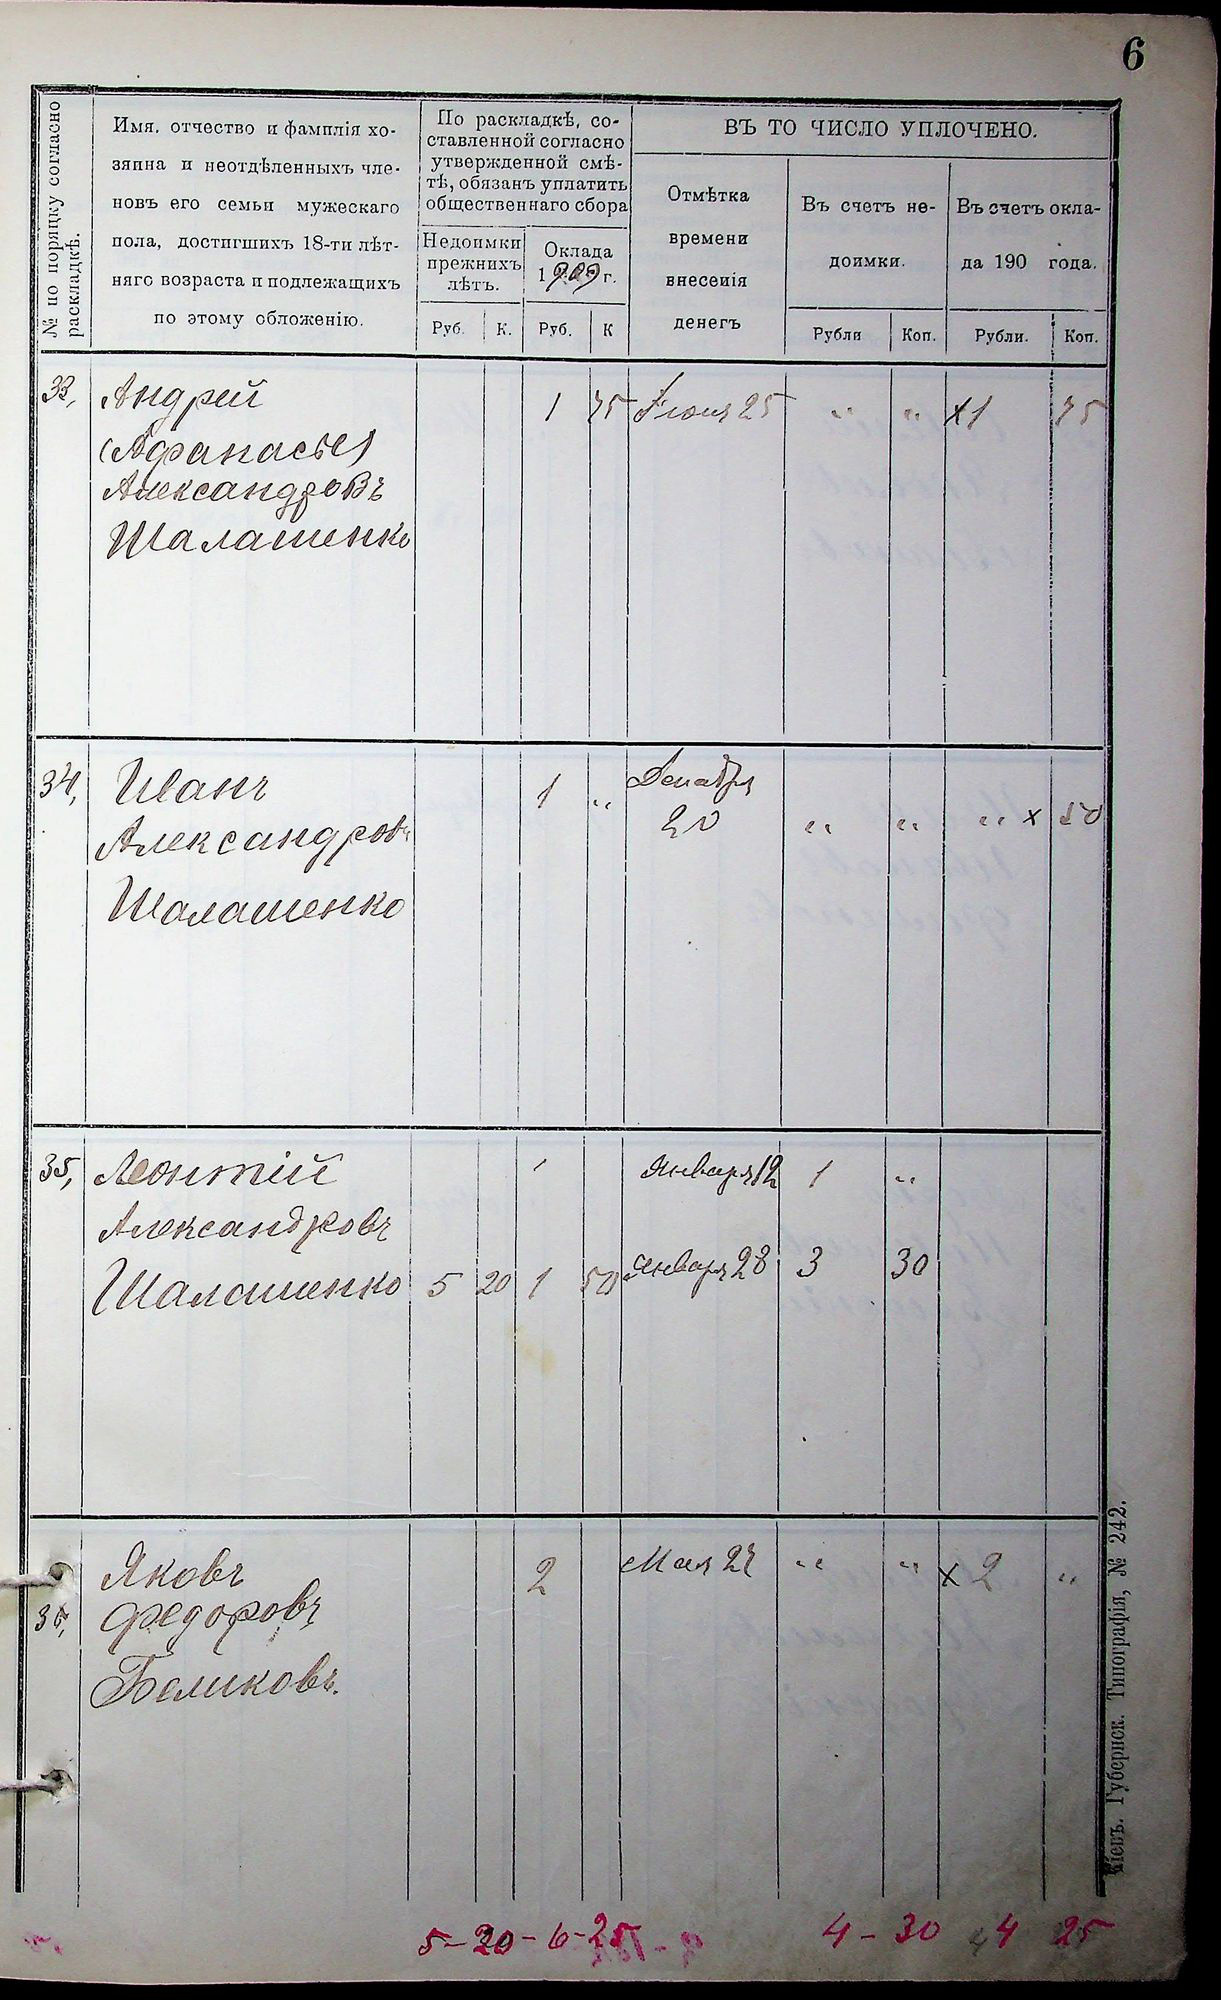 6
№ по порядку согласно
раскладкѣ.
Имя, отчество и фамилія хо-
зяина и неотдѣленныхъ чле-
новъ его семьи мужескаго
пола, достигшихъ 18-ти лѣт-
няго возраста и подлежащихъ
по этому обложенію.
По раскладкѣ, со-
ставленной согласно
утвержденной смѣ-
тѣ, обязанъ уплатить
общественнаго сбора
Недоимки
прежнихъ
лѣтъ.
Оклада
1909 г.
Руб. К. Руб. К
ВЪ ТО ЧИСЛО УПЛОЧЕНО.
Отмѣтка
времени
внесенія
денегъ
Въ счетъ не-
доимки.
Въ счетъ окла-
да 190 года.
Рубли Коп. Рубли. Коп.
33, Андрей 1 75 Іюня 25 " " х1 75
(Афанасье)
Александровъ
Шалашенко
34, Иванъ 1 " Декабря
Александровъ 20 " " " х 50
Шалашенко
35, Леонтій Января 12 1 "
Александровъ
Шалашенко 5 20 1 50 Января 28 3 30
Яковъ 2 Мая 27 " " х 2 "
36, Федоровъ
Беликовъ.
5-20-6-25 4-30 4 25
Кіевъ. Губернск. Типографія, № 242.